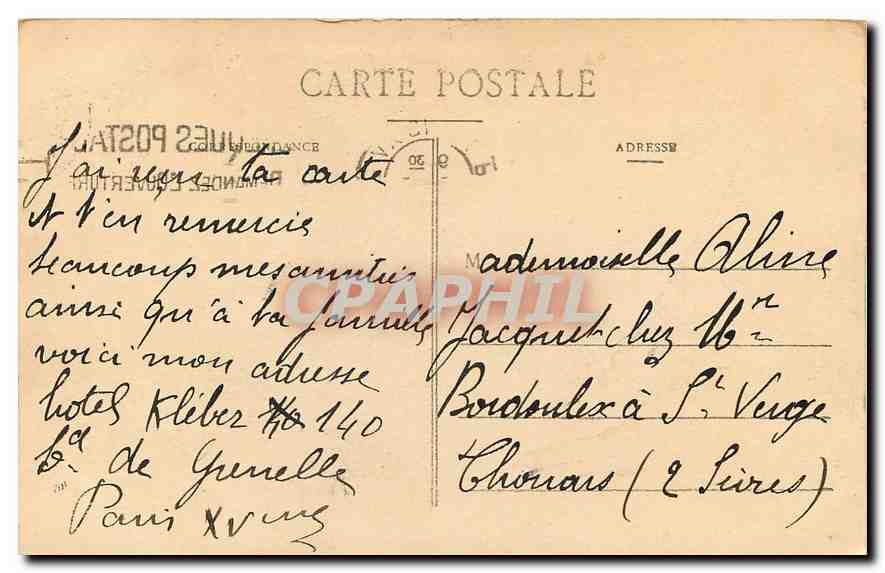 CARTE POSTALE
CORRESPONDANCE
ADRESSE
J'ai reçu ta carte
et t'en remercie
beaucoup mes amitiés
ainsi qu'à ta famille
voici mon adresse
hotel Kléber 140
bd de Grenelle
Paris XVme
Mademoiselle Aline
Jacquet chez Mr
Bordoulex à St Verge
Thouars (2 Sèvres)
CPAPHIL